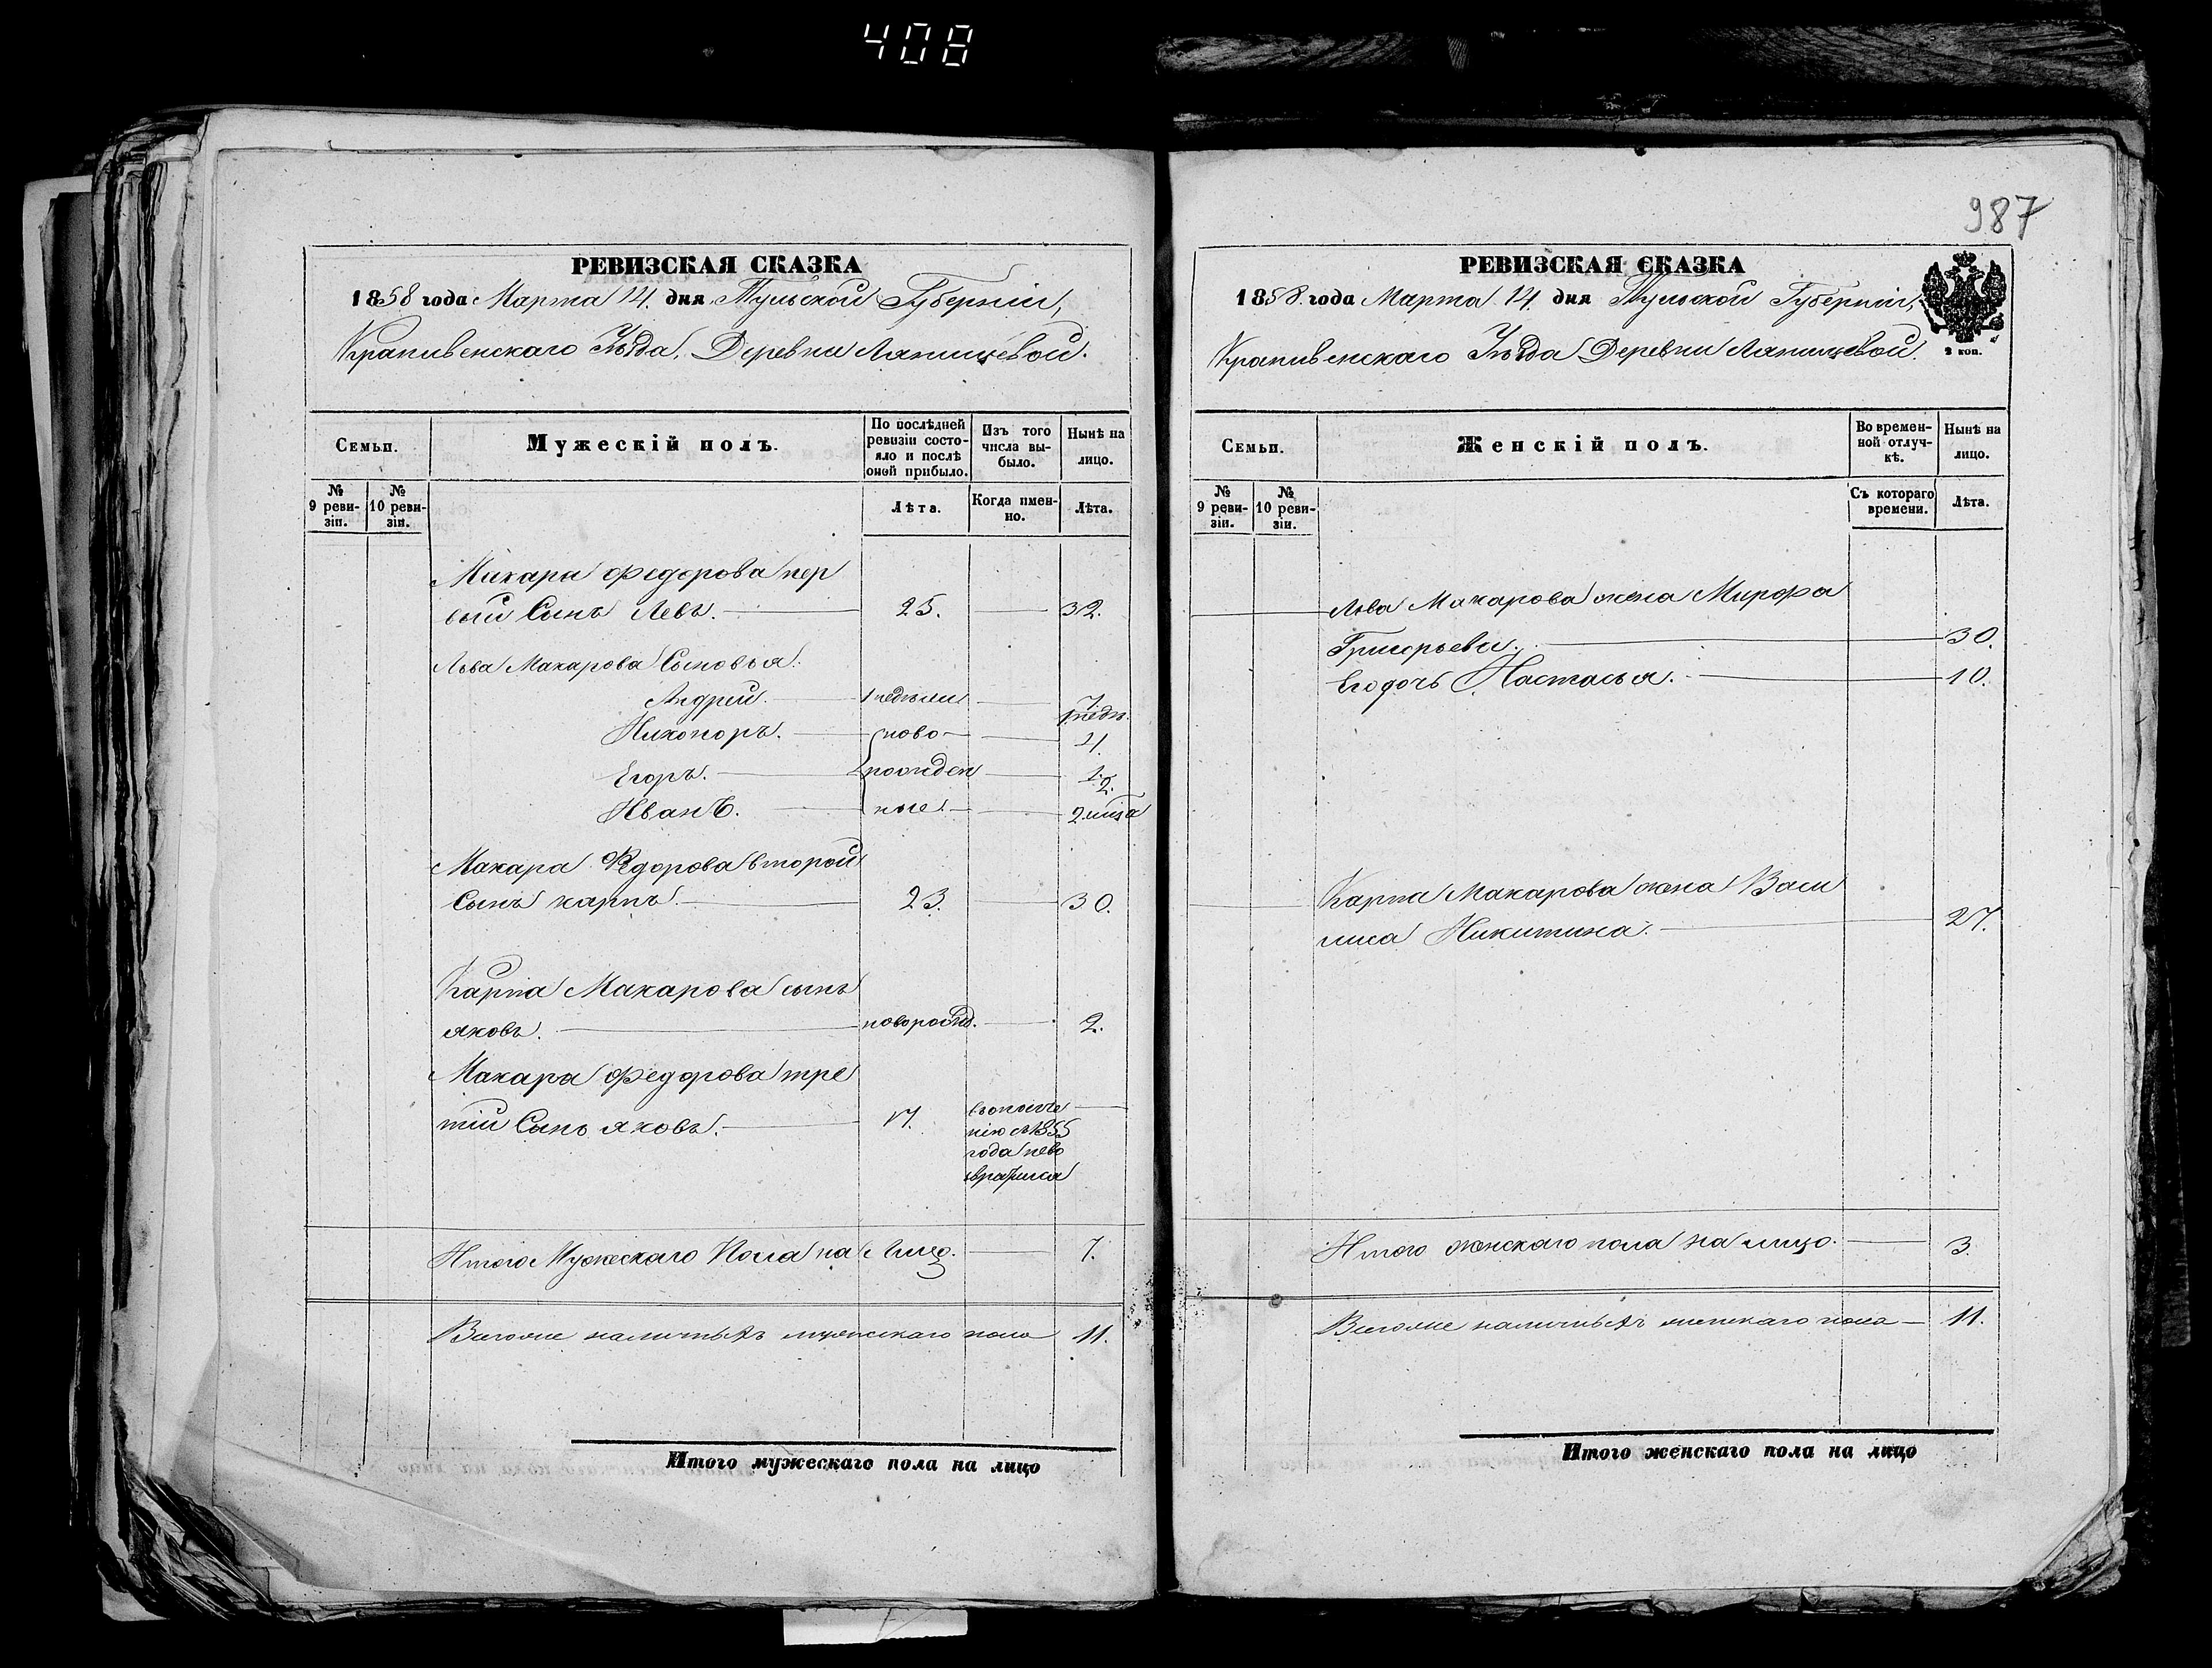 408
РЕВИЗСКАЯ СКАЗКА
1858 года Марта 14. дня Тульской Губерніи,
Крапивенскаго Уѣзда, Деревни Ляпищевой.
Семьи.
Мужескій полъ.
По послѣдней ревизіи состояло и послѣ оной прибыло.
Изъ того числа выбыло.
Нынѣ на лицо.
№ 9 ревизіи.
№ 10 ревизіи.
Лѣта.
Когда именно.
Лѣта.
Макара Федорова пер
вый Сынъ Левъ. 25. 32.
Льва Макарова Сыновья.
Андрей. 1 недѣли 7. 1 недѣ.
Никоноръ. ново 4.
Егоръ. рожден 2.
Иванъ. ные. 2 мѣца
Макара Федорова второй
Сынъ карпъ. 23. 30.
Карпа Макарова сынъ
яковъ. новорожд. 2.
Макара Федорова тре
тій Сынъ яковъ. 17.
нію съ 1855
года нево
вратился
Итого Мужескаго Пола на Лицо. 7.
Всегоже наличныхъ мужескаго пола 11.
Итого мужескаго пола на лицо
987
РЕВИЗСКАЯ СКАЗКА
1858 года Марта 14. дня Тульской Губерніи,
Крапивенскаго Уѣзда Деревни Ляпищевой.
2 коп.
Семьи.
Женскій полъ.
Во временной отлучкѣ.
Нынѣ на лицо.
№ 9 ревизіи.
№ 10 ревизіи.
Съ котораго времени.
Лѣта.
Льва Макарова жена Марфа
Григорьева. 30.
Его дочь Настасья. 10.
Карпа Макарова жена Васи
лиса Никитина. 27.
Итого женскаго пола на лицо. 3.
Всегоже наличныхъ женскаго пола 11.
Итого женскаго пола на лицо